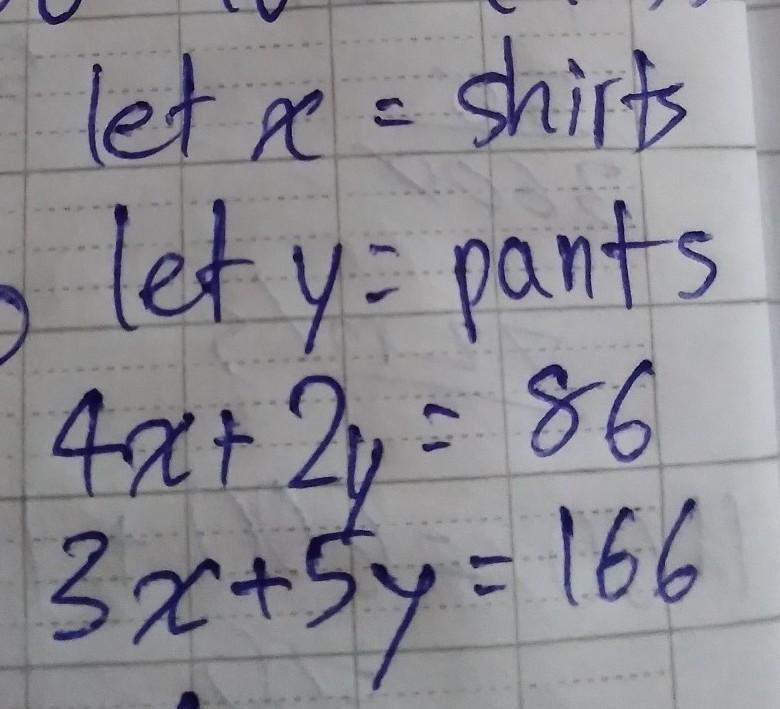 let x = shirts
let y = pants
4x + 2y = 86
3x + 5y = 166